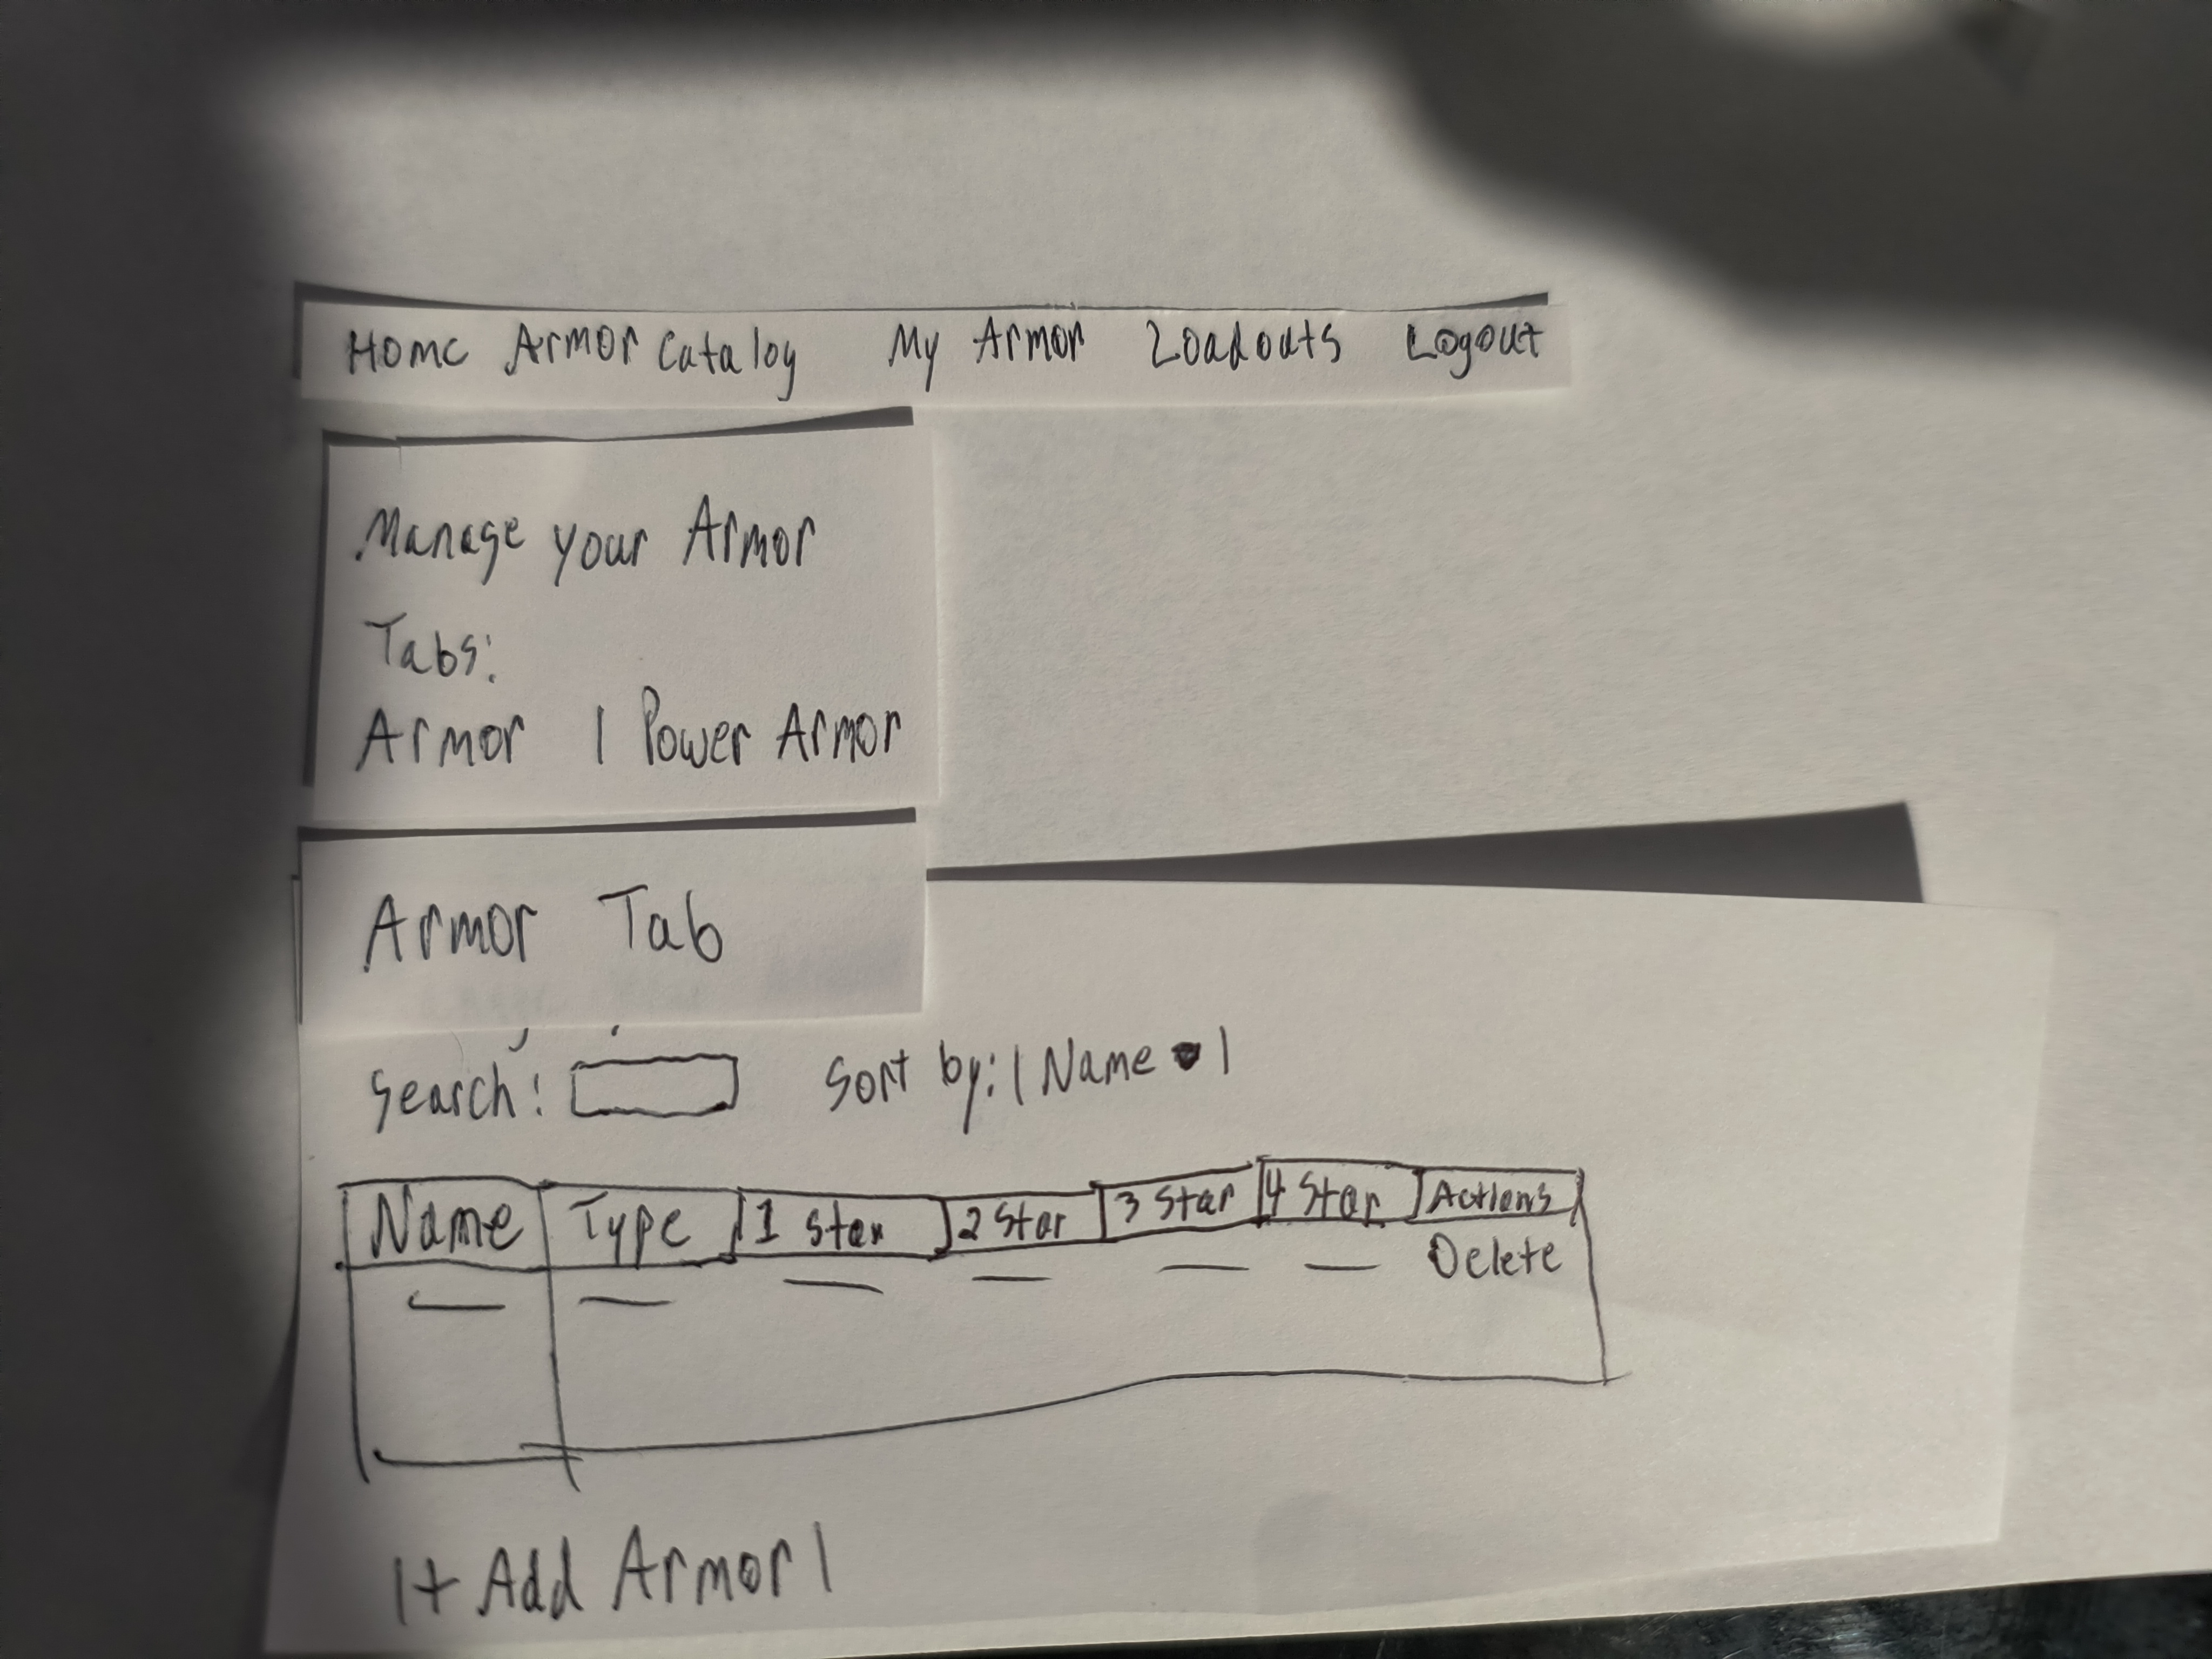 Home Armor Catalog My Armor Loadouts Logout
Manage your Armor
Tabs:
Armor | Power Armor
Armor Tab
Search: Sort by: | Name |
Name Type 1 Star 2 Star 3 Star 4 Star Actions
Delete
|+ Add Armor|